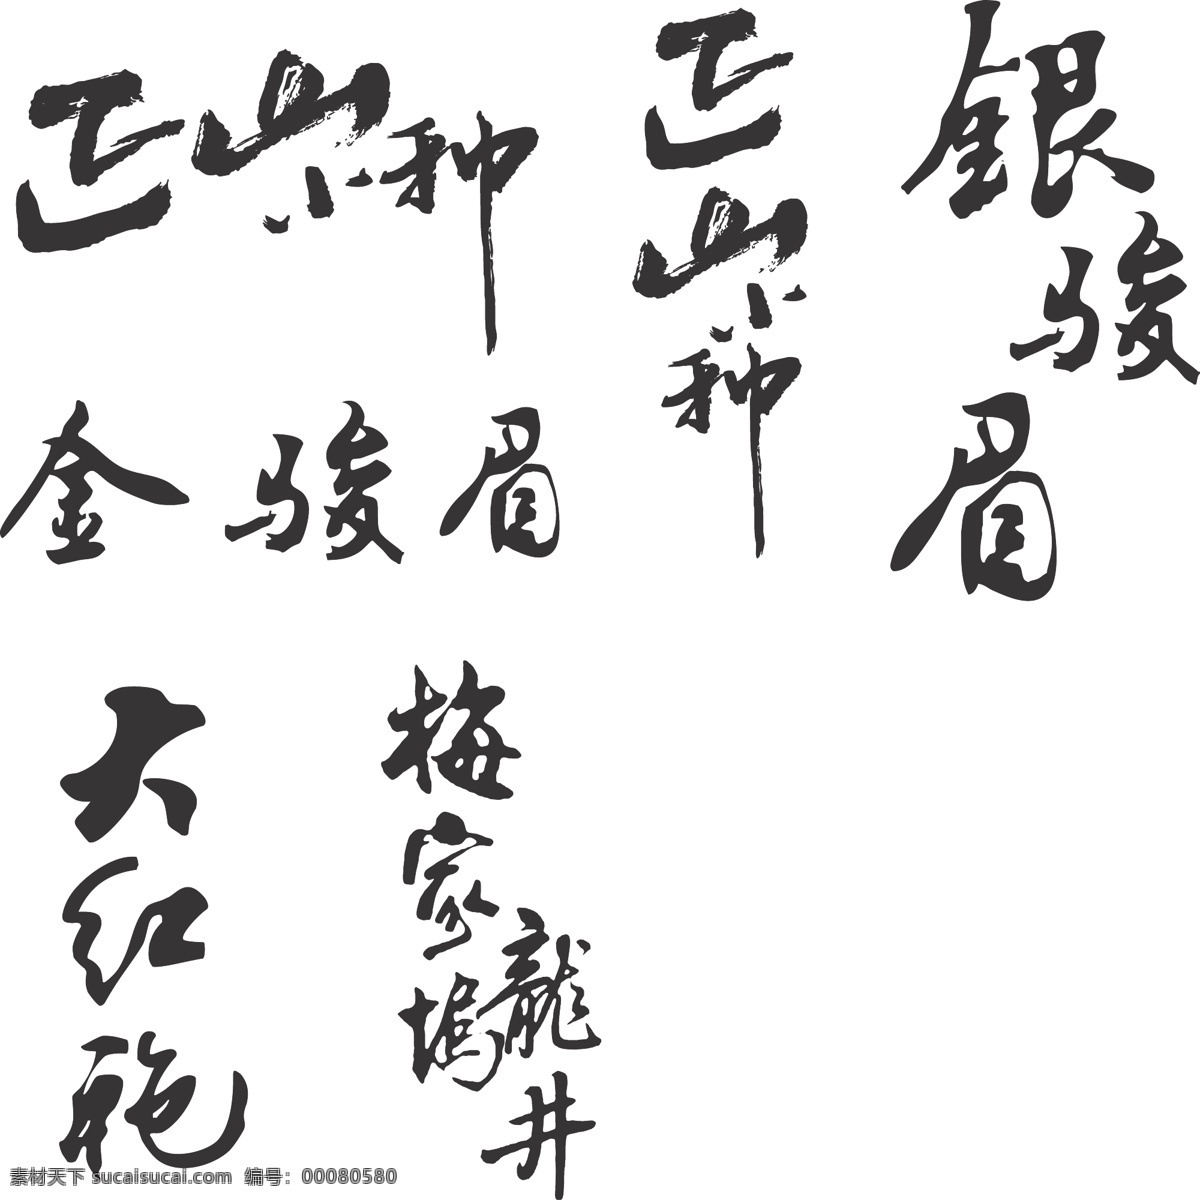 正山小种
金骏眉
正山小种
銀骏眉
大红袍
梅家坞
龍井
素材天下 sucaisucai.com 编号：00080580